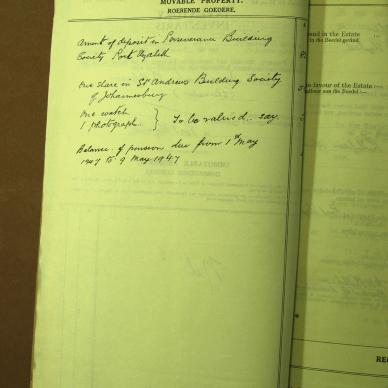 MOVABLE PROPERTY.
ROERENDE GOEDERE.
Amount of deposit in Perseverance Building
Society Port Elizabeth
One share in St Andrews Building Society
of Johannesburg
One watch
1 photograph } To be valued. say
Balance of pension due from 1st May
1947 to 9 May 1947
und in the Estate
in die Boedel
e favour of the Estate
REC